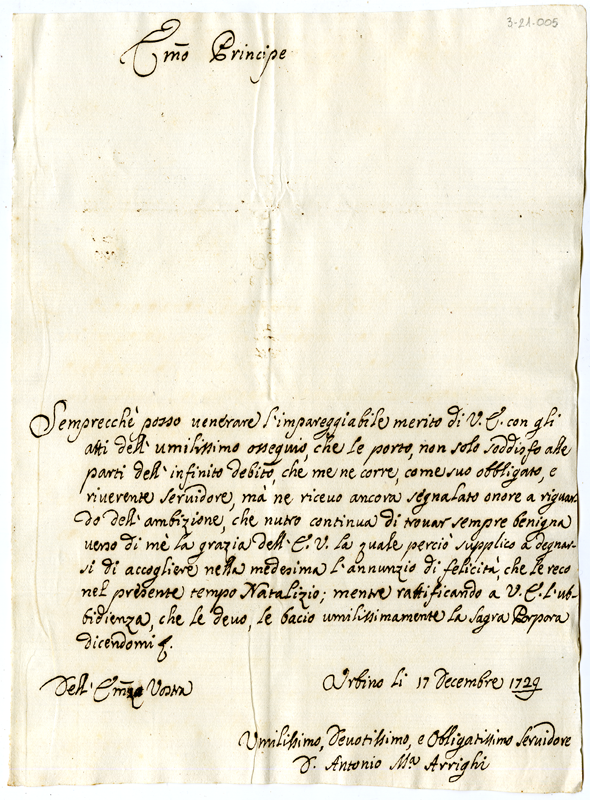 3-21-005
Em̃o Principe
Semprecchè posso venerare l'impareggiabile merito di V. E. con gli
atti dell' umilissimo ossequio, che le porto, non solo soddisfo alle
parti dell' infinito debito, che me ne corre, come suo obbligato, e
riverente servidore, mà ne ricevo ancora segnalato onore a riguar-
do dell' ambizione, che nutro continua di trovar sempre benigna
verso di mè la grazia dell' E. V. la quale perciò supplico a degnar-
si di accogliere nella medesima l'annunzio di felicità, che le reco
nel presente tempo Natalizio; mentre rattificando a V. E. l'ub-
bidienza, che le devo, le bacio umilissimamente la Sagra Porpora
dicendomi
Dell' Em̃a Vostra
Urbino li 17 Decembre 1729
Umilissimo, Devotissimo, e Obbligatissimo Servidore
D. Antonio Mᵃ Arrighi